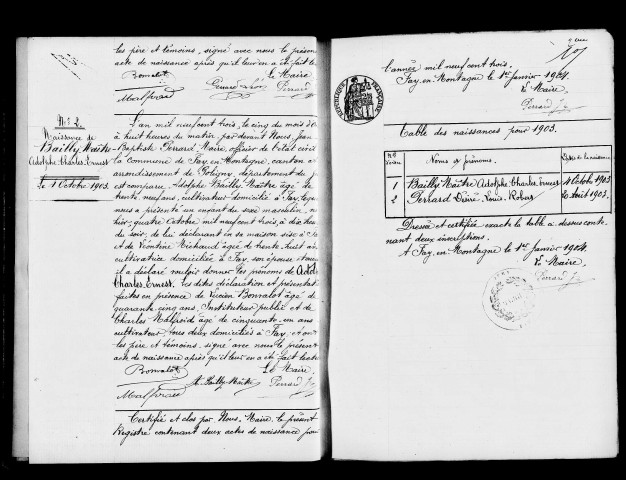 les père et témoins, signé avec nous le présen
acte de naissance après qu'il leur en a été fait le
Le Maire
Bonvalot
Perrard
Malfroid
N° 2.
Naissance de
Bailly-Maître
Adolphe Charles Ernest
Le 4 Octobre 1903
L'an mil neuf cent trois, le cinq du mois d'O
à huit heures du matin, par devant Nous, Jean
Baptiste Perrard, Maire, officier de l'état civil
la commune de Fay en Montagne, canton
arrondissement de Poligny, département du J
est comparu, Adolphe Bailly Maître âgé de
trente neuf ans, cultivateur domicilié à Fay, lequel
nous a présenté un enfant du sexe masculin, n
hier, quatre Octobre mil neuf cent trois, à dix heu
du soir, de lui déclarant en sa maison sise à Fa
et de Léontine Michaud âgée de trente huit an
cultivatrice domiciliée à Fay, son épouse, et au
il a déclaré vouloir donner les prénoms de Adol
Charles, Ernest, les dites déclaration et présentat
faites en présence de Lucien Bonvalot âgé de
quarante cinq ans, Instituteur public et de
Charles Malfroid âgé de cinquante un ans
cultivateur, tous deux domiciliés à Fay, et ont
les père et témoins, signé avec nous le présent
acte de naissance après qu'il leur en a été fait lect
Bonvalot
Le Maire.
A. Bailly-Maître
Perrard J
Malfroid
Certifié et clos par Nous, Maire, le présent
Registre contenant deux actes de naissance pour
l'année mil neuf cent trois.
Fay, en Montagne le 1er janvier 1904.
Le Maire,
Perrard J
Table des naissances pour 1903.
Noms & prénoms.
Dates de la naissance
1 Bailly Maître Adolphe Charles Ernest 4 Octobre 1903
2 Perrard Désiré Louis Robert 20 Août 1903
Dressée et certifiée exacte la table ci dessus conte
nant deux inscriptions.
A Fay, en Montagne le 1er janvier 1904.
Le Maire,
Perrard J